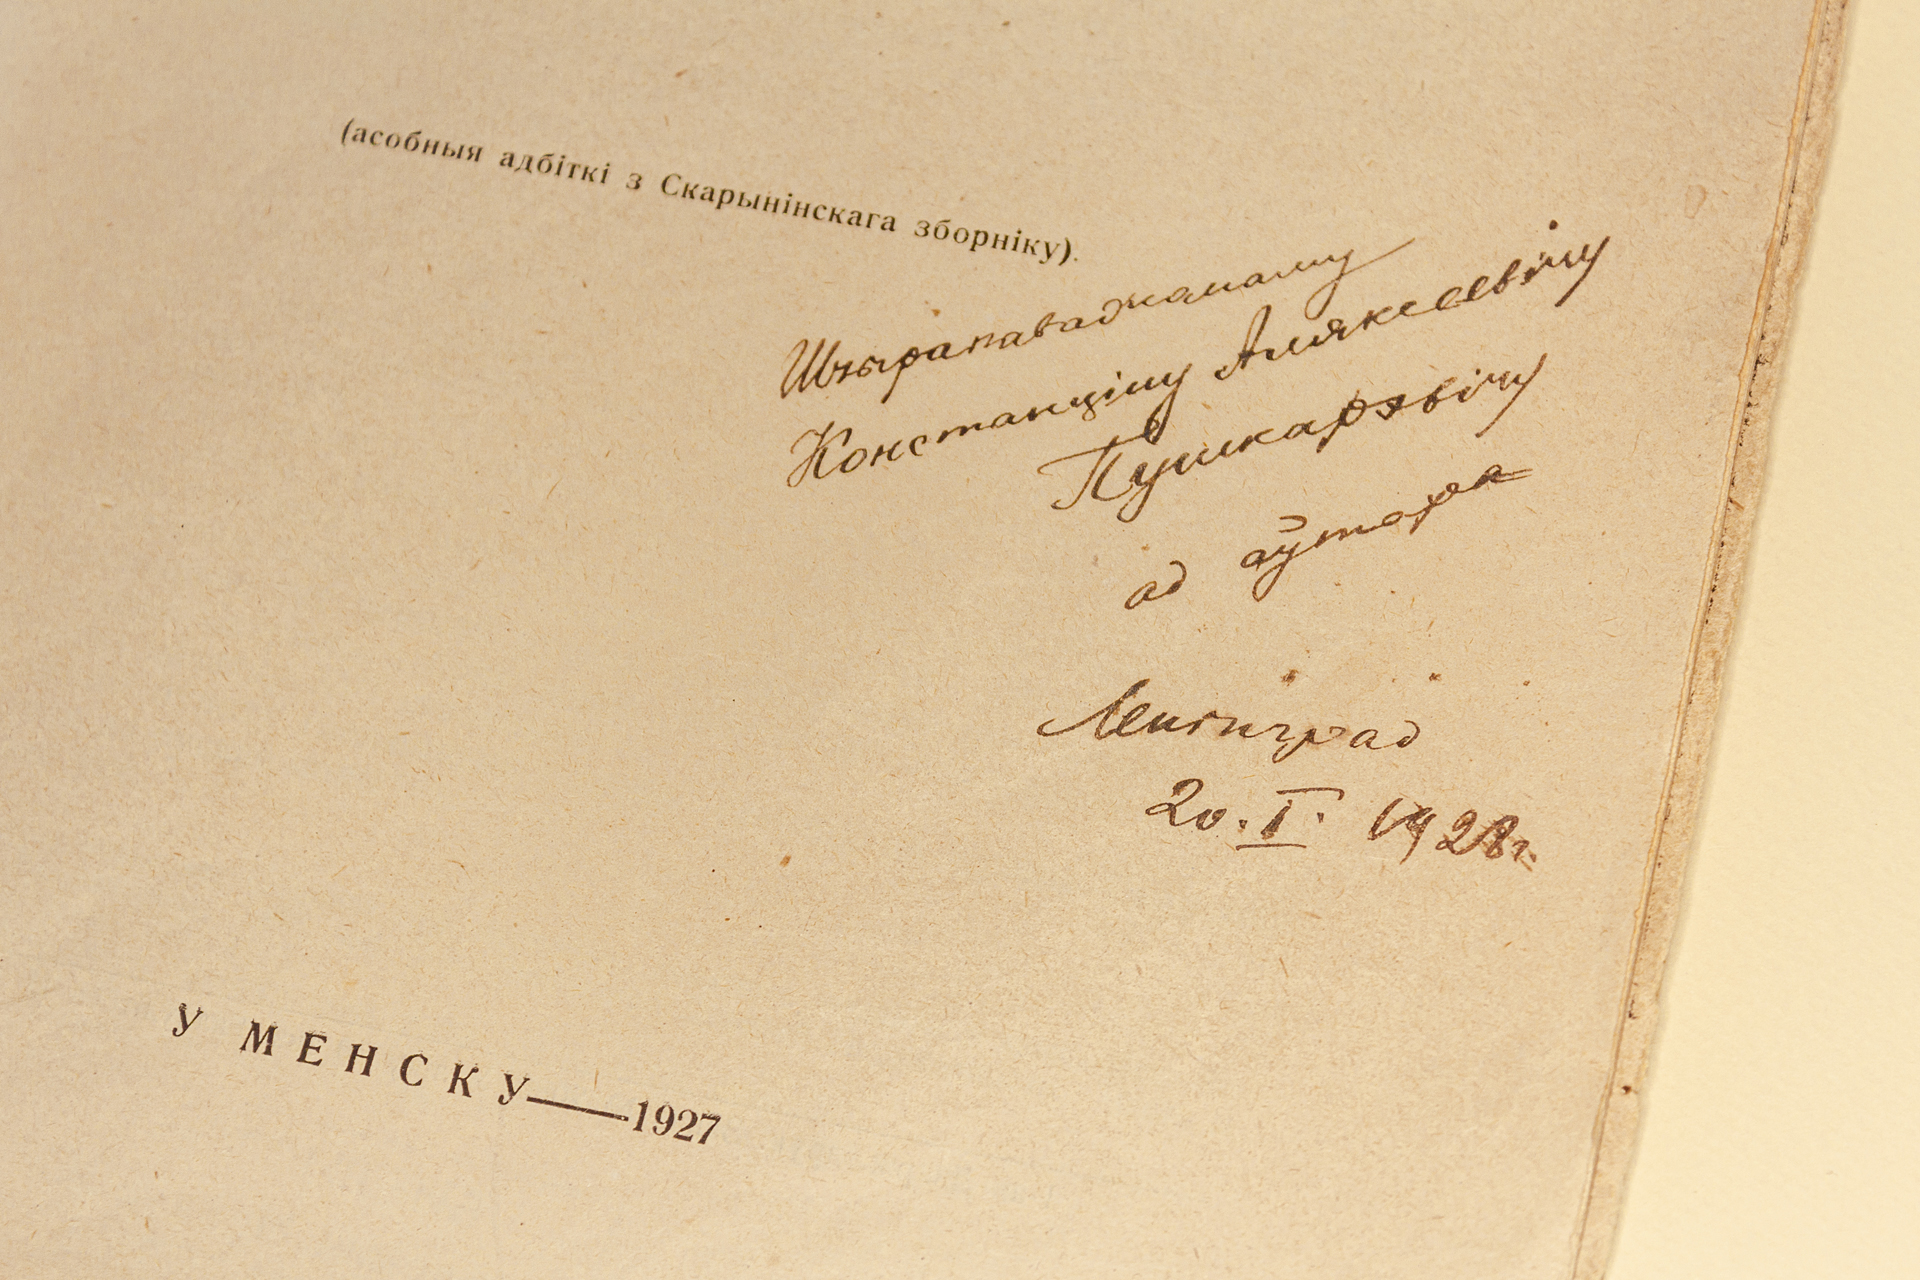 (асобныя адбіткі з Скарынінскага зборніку).
Шчырапаважанаму
Констанціну Аляксеевічу
Пушкарэвічу
ад аўтора
Ленінград
20.I. 1928г.
У МЕНСКУ—1927